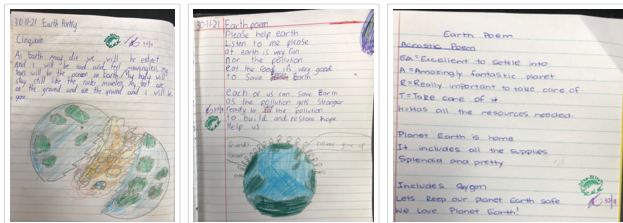 30.11.21 Earth Poetry
Cinquain
As Earth may die we will be extinct
and I will be and and feel meaningless my
will be the power on Earth My body will
stay still like the rocks
on the ground and on the ground and I will be
gone
30.11.21 Earth poem
Please help earth
Listen to me please
at earth is very fun
Nor the pollution
Eat the food it's very good
to Save Earth
Each of us can Save Earth
as the pollution gets Stronger
ready to the pollution
to build and restore hope
Help us
never give up
Earth Poem
Acrostic Poem
E= Excellent to settle into
A= Amazingly fantastic planet
R= Really important to take care of
T= Take care of it
H= Has all the resources needed.
Planet Earth is home
It includes all the supplies
Splendid and pretty
Includes Oxygen
Lets keep our planet Earth safe
We Love Planet Earth!